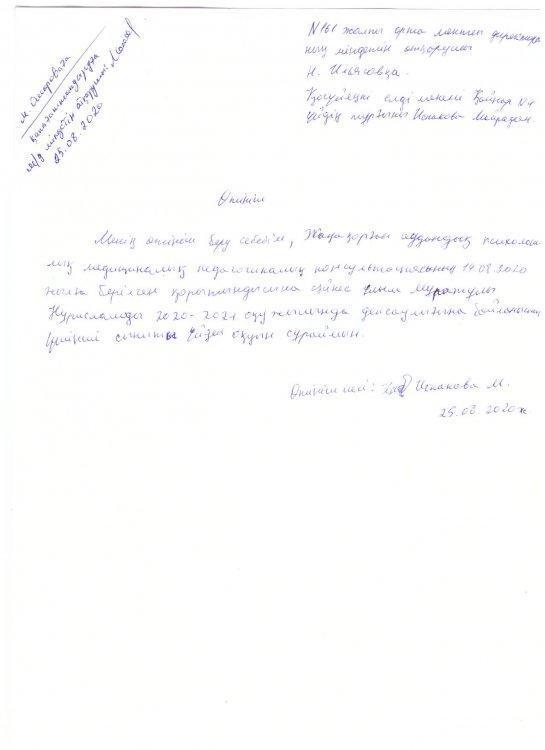 М. Омароваға
қанағаттандыруға
м/у міндетін атқарушы
25.08.2020
№161 жалпы орта мектеп директоры
ның міндетін атқарушы
Н. Ильясовқа.
Қосүйеңкі елді мекені Қайнар №4
үйдің тұрғыны Испанова Майрадан.
Өтініш
Менің өтініш беру себебім, Жаңақорған аудандық психология
лық медициналық педагогикалық консультацияның 14.08.2020
жылы берілген қорытындысына сәйкес ұлым Мұратұлы
Нурисламды 2020-2021 оқу жылында денсаулығына байланысты
үшінші сыныпты үйден оқуын сұраймын.
Өтініш иесі: Испанова М.
25.08.2020ж